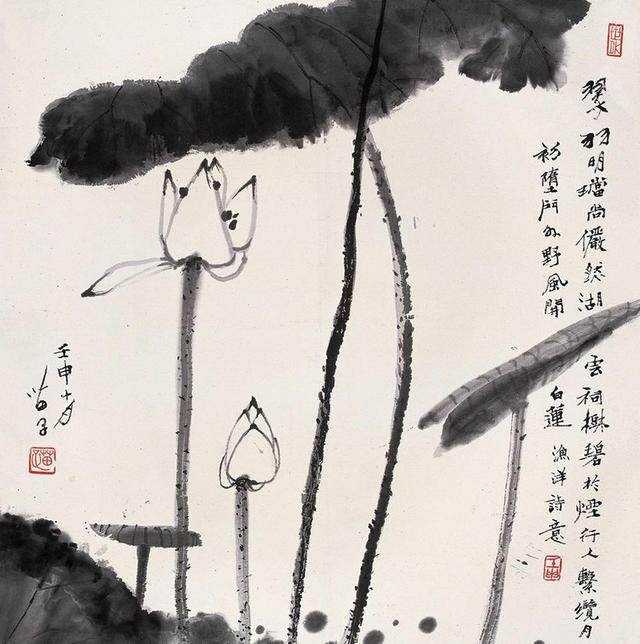 翠羽明璫尚儼然湖雲祠樹碧於煙行人繫纜月
初墮門外野風開白蓮 漁洋詩意
壬申十月
苗子